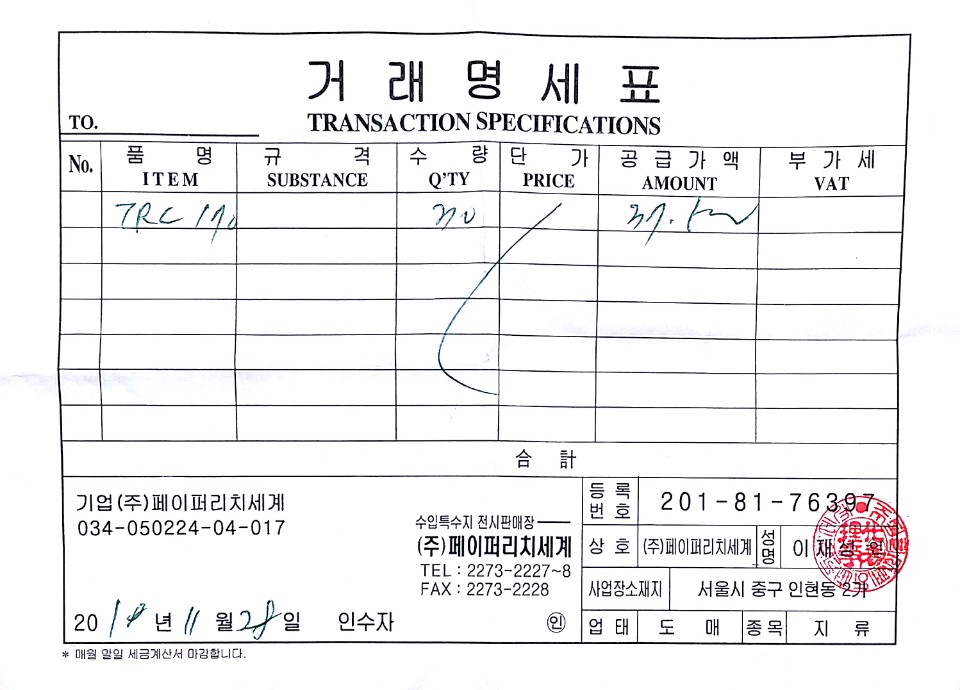 거래명세표
TO.
TRANSACTION SPECIFICATIONS
No. 품명 규격 수량 단가 공급가액 부가세
ITEM SUBSTANCE Q'TY PRICE AMOUNT VAT
TRC
合 計
기업(주)페이퍼리치세계
034-050224-04-017
수입특수지 전시판매장
(주)페이퍼리치세계
TEL : 2273-2227~8
FAX : 2273-2228
등록번호 201-81-76397
상호 (주)페이퍼리치세계 성명 이재성 원
사업장소재지 서울시 중구 인현동 2가
업태 도매 종목 지류
20 년 11 월 28 일 인수자 인
* 매월 말일 세금계산서 마감합니다.